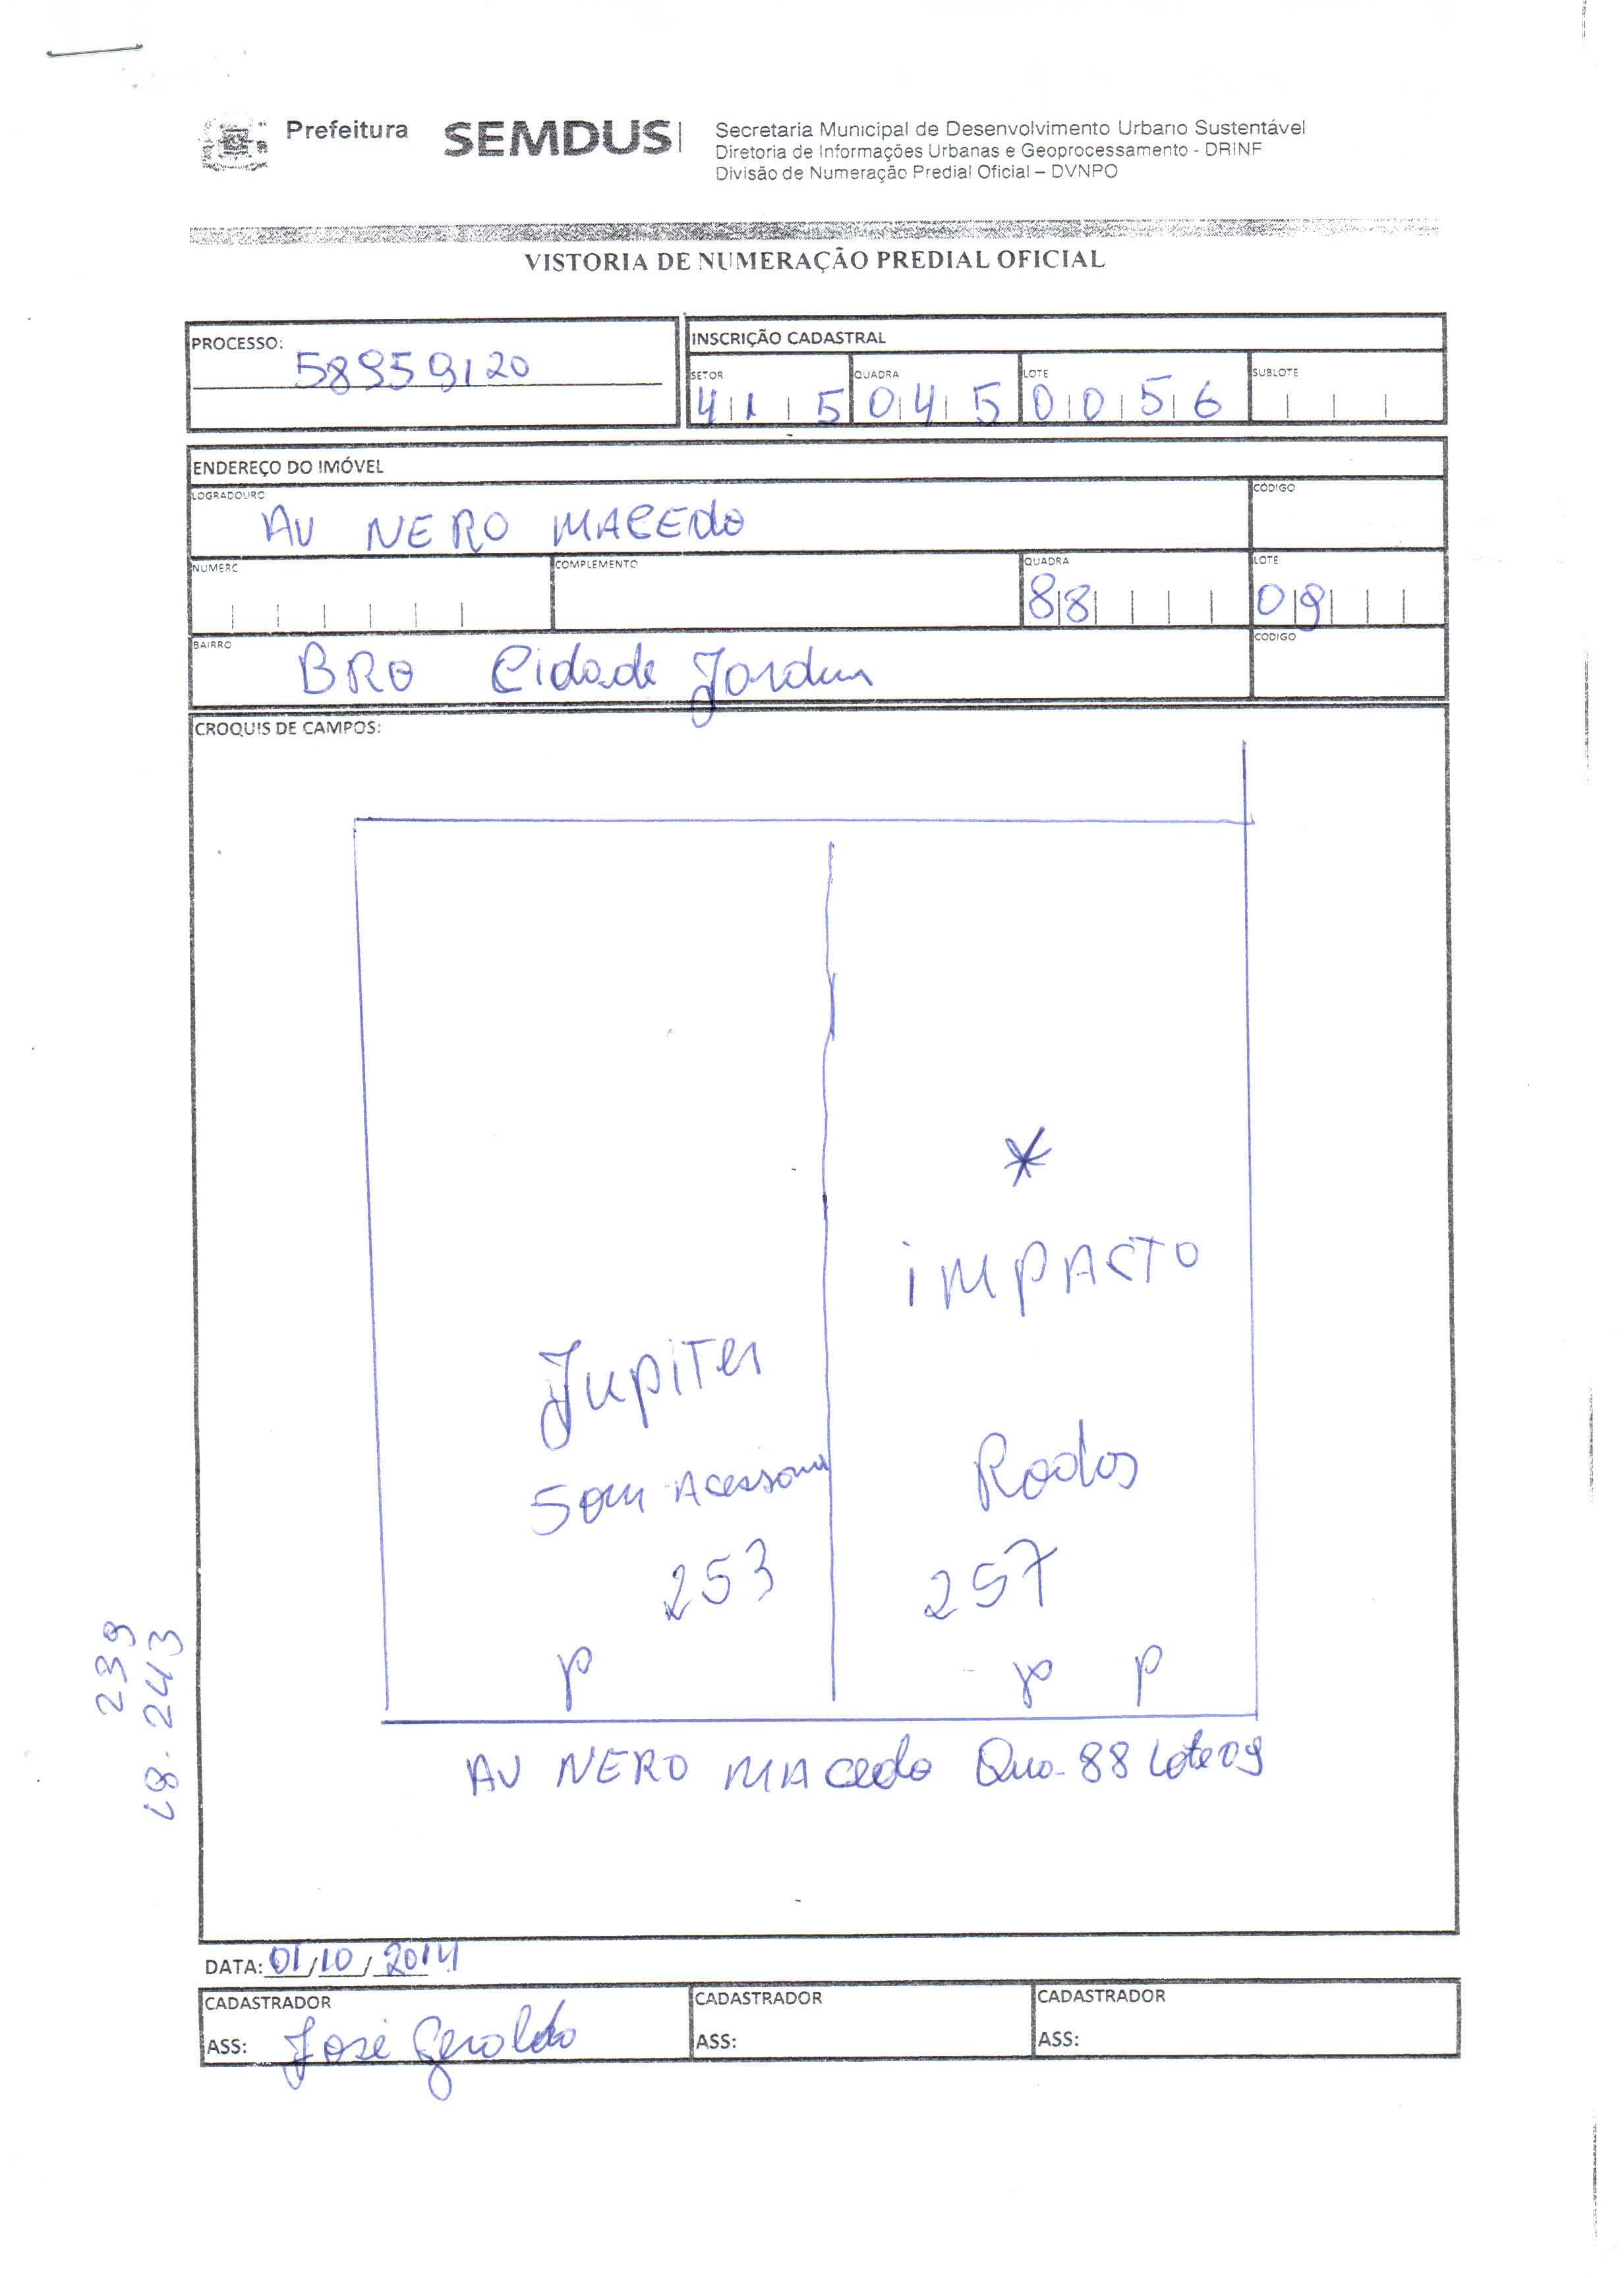 Prefeitura SEMDUS
Secretaria Municipal de Desenvolvimento Urbano Sustentável
Diretoria de Informações Urbanas e Geoprocessamento - DRINF
Divisão de Numeração Predial Oficial – DVNPO
VISTORIA DE NUMERAÇÃO PREDIAL OFICIAL
PROCESSO:
58959120
INSCRIÇÃO CADASTRAL
SETOR QUADRA LOTE SUBLOTE
41 5 045 0056
ENDEREÇO DO IMÓVEL
LOGRADOURO CÓDIGO
AV NERO MACEDO
NUMERO COMPLEMENTO QUADRA LOTE
88 09
BAIRRO CÓDIGO
BRO Cidade Jardim
CROQUIS DE CAMPOS:
*
IMPACTO
Jupiter
Som Acessorios
Rodas
253 257
P P P
239
L8. 243
AV NERO MAcedo Qua- 88 Lote 09
DATA: 01/10/2014
CADASTRADOR CADASTRADOR CADASTRADOR
ASS: José Geraldo ASS: ASS: